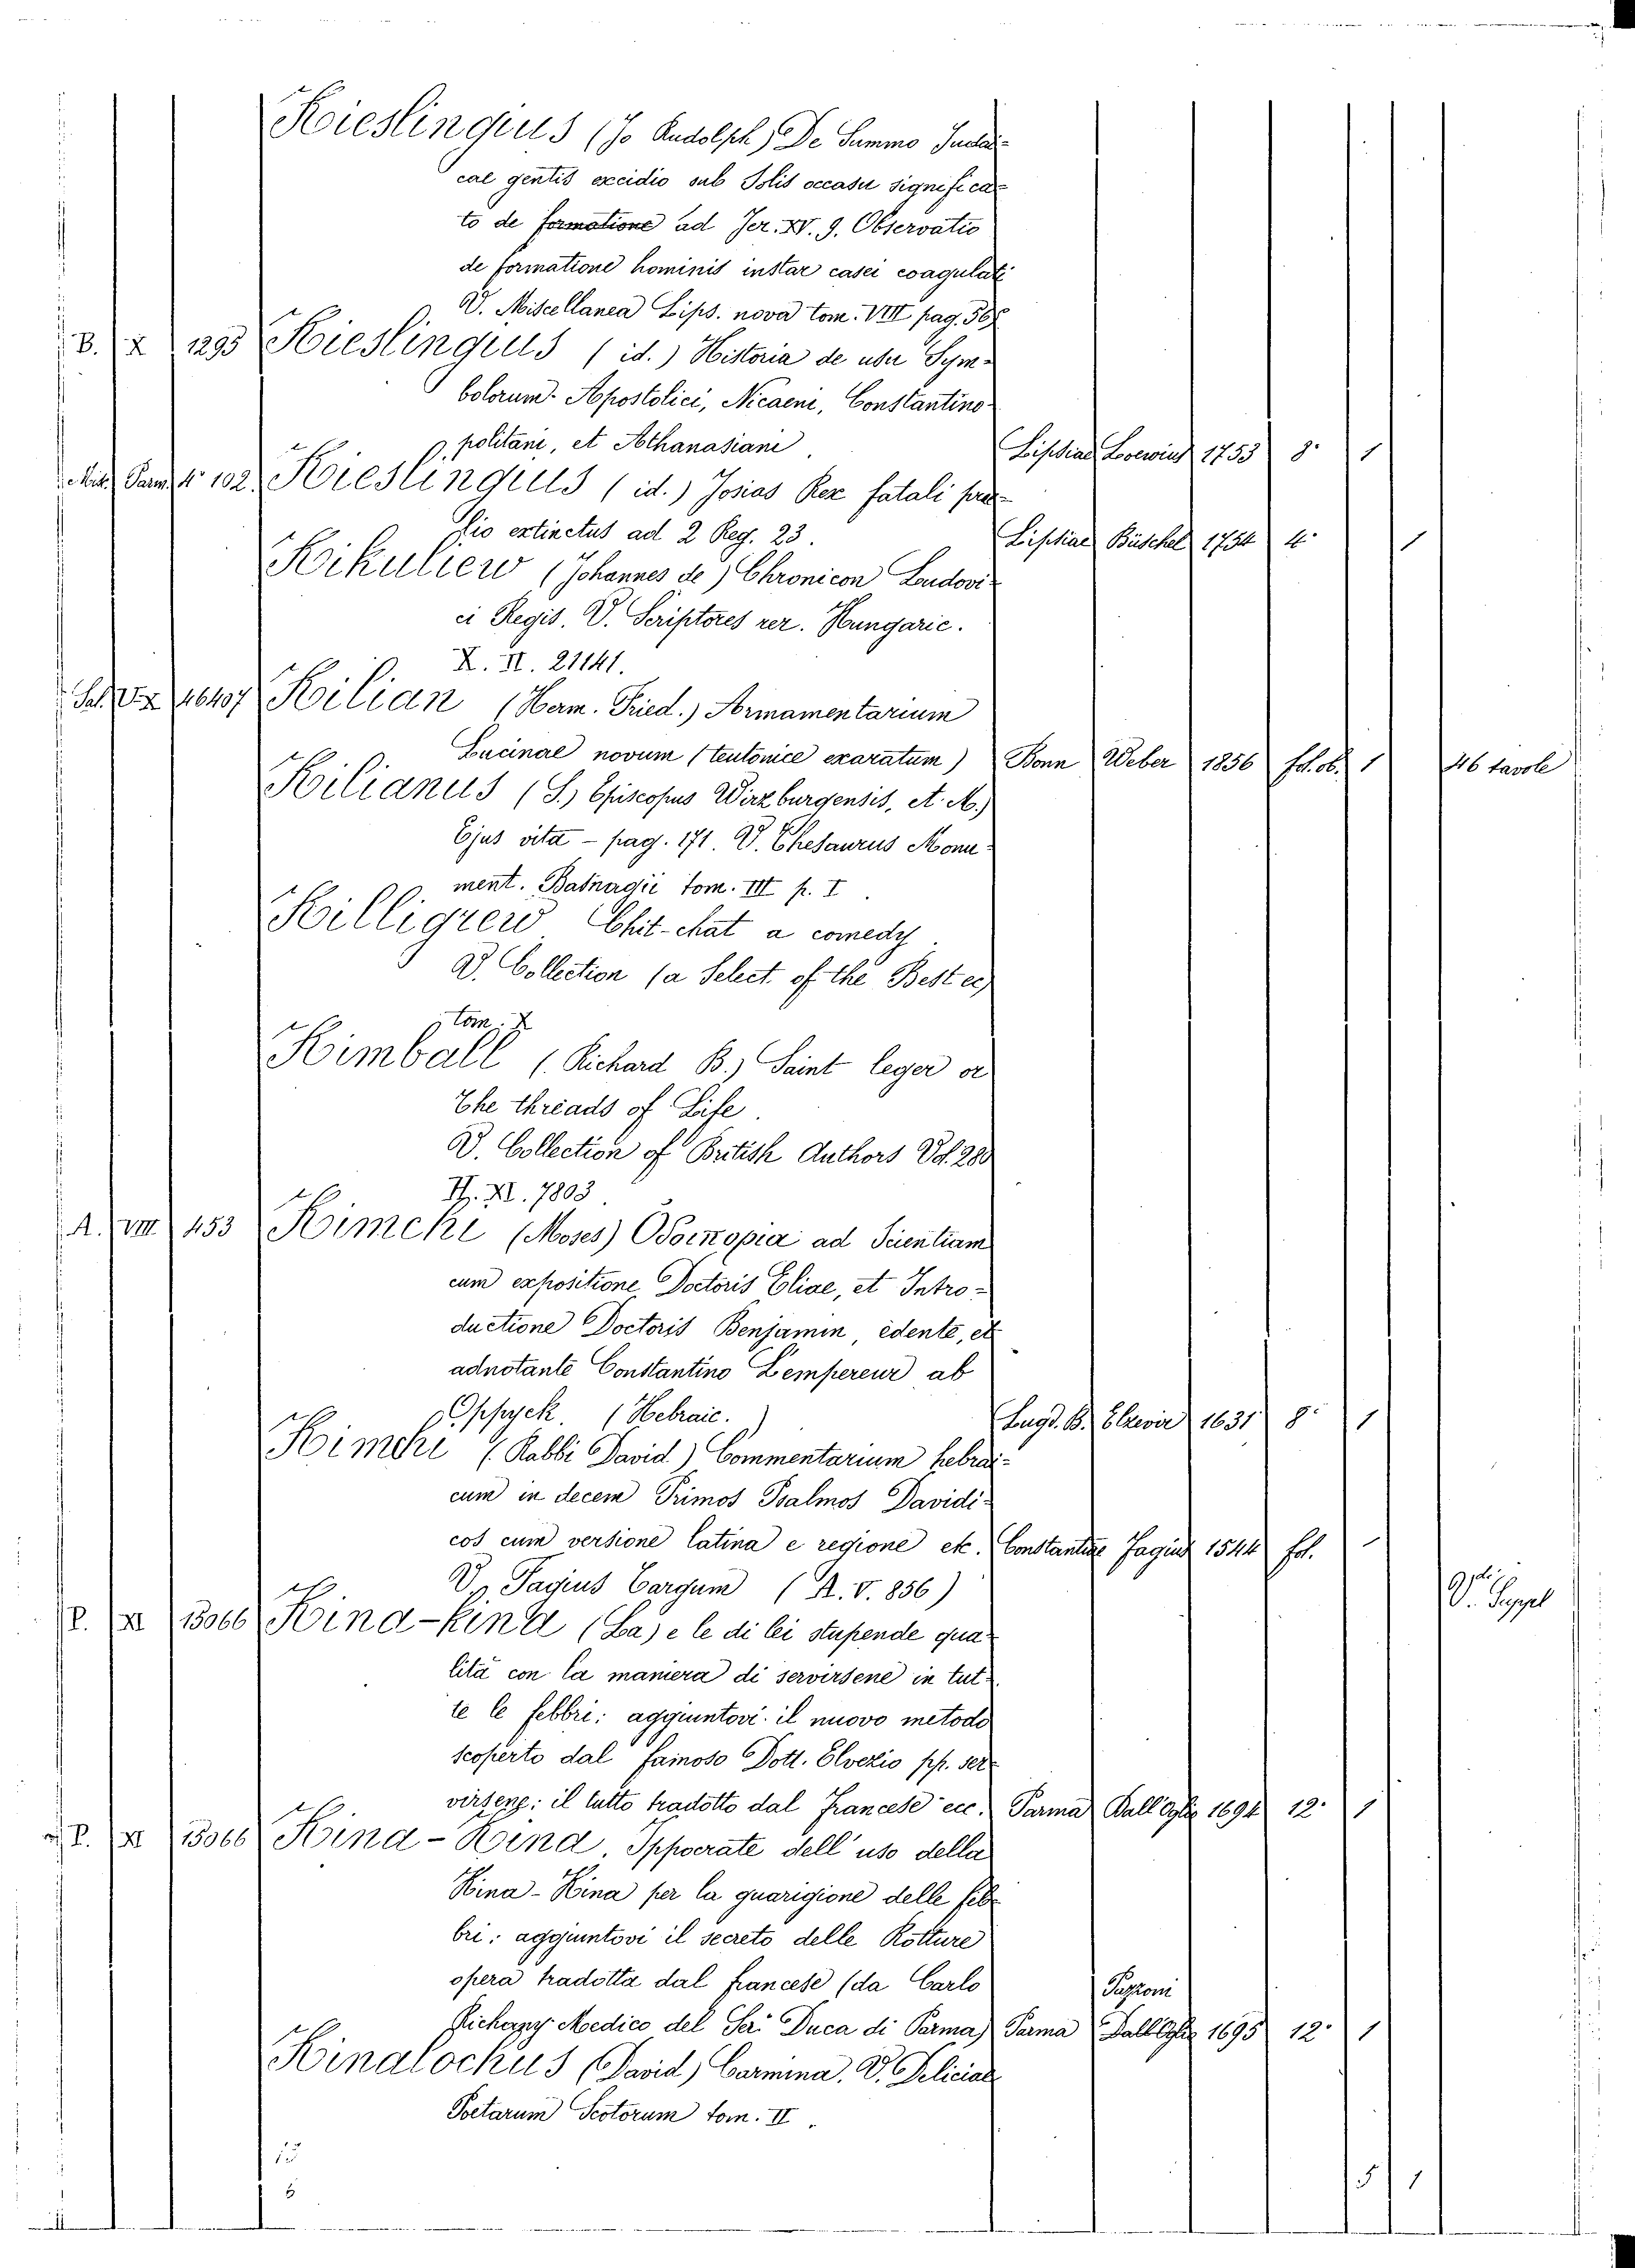 Kieslingius (Jo Rudolph) De Summo Judai-
cae gentis excidio sub Solis occasu significa-
to de formatione ad Jer. XV. 9. Observatio
de formatione hominis instar casei coagulati
V. Miscellanea Lips. nova tom. VIII pag.
B. X 1295 Kieslingius (id.) Historia de usu Sym-
bolorum Apostolici, Nicaeni, Constantino-
politani, et Athanasiani. Lipsiae Loewius 1753 8° 1
Misc. Parm. 4° 102. Kieslingius (id.) Josias Rex fatali prae-
lio extinctus ad 2 Reg. 23. Lipsiae Büschel 1754 4° 1
Kikullew (Johannes de) Chronicon Ludovi-
ci Regis. V. Scriptores rer. Hungaric.
X. II. 21141.
Sal. V.X 16407 Kilian (Herm. Fried.) Armamentarium
Lucinae novum (teutonice exaratum) Bonn Weber 1856 fol. ob. 1 46 tavole
Kilianus (S.) Episcopus Wirzburgensis, et M.)
Ejus vita - pag. 171. V. Thesaurus Monu-
ment. Basnagii tom. III p. I.
Killigrew Chit-chat a comedy.
V. Collection (a Select of the Best ec)
tom. X
Kimball (Richard B.) Saint leger or
The threads of Life.
V. Collection of British Authors Vol. 280
H. XI. 7803.
A. VIII 453 Kimchi (Moses) Οδοιπορια ad Scientiam
cum expositione Doctoris Eliae, et Intro-
ductione Doctoris Benjamin, edente, et
adnotante Constantino L'empereur ab
Oppyck. (Hebraic.) Lugd. B. Elzevir 1631 8° 1
Kimchi (Rabbi David) Commentarium hebrai-
cum in decem Primos Psalmos Davidi-
cos cum versione latina e regione etc. Constantiae Fagius 1544 fol.
V. Fagius Targum (A. V. 856)
P. XI 15066 Kina-Kina (La) e le di lei stupende qua-
lità con la maniera di servirsene in tut-
te le febbri: aggiuntovi il nuovo metodo
scoperto dal famoso Dott. Elvezio pp. ser-
virsene: il tutto tradotto dal Francese ecc. Parma Dall'Oglio 1694 12° 1
P. XI 15066 Kina-Kina. Ippocrate dell'uso della
Kina-Kina per la guarigione delle feb-
bri: aggiuntovi il secreto delle Rotture
opera tradotta dal francese (da Carlo Pazzoni
Medico del Ser. Duca di Parma) Parma Dall'Oglio 1695 12° 1
Kinalochus (David) Carmina. V. Deliciae
Poetarum Scotorum tom. II.
15
6
5 1